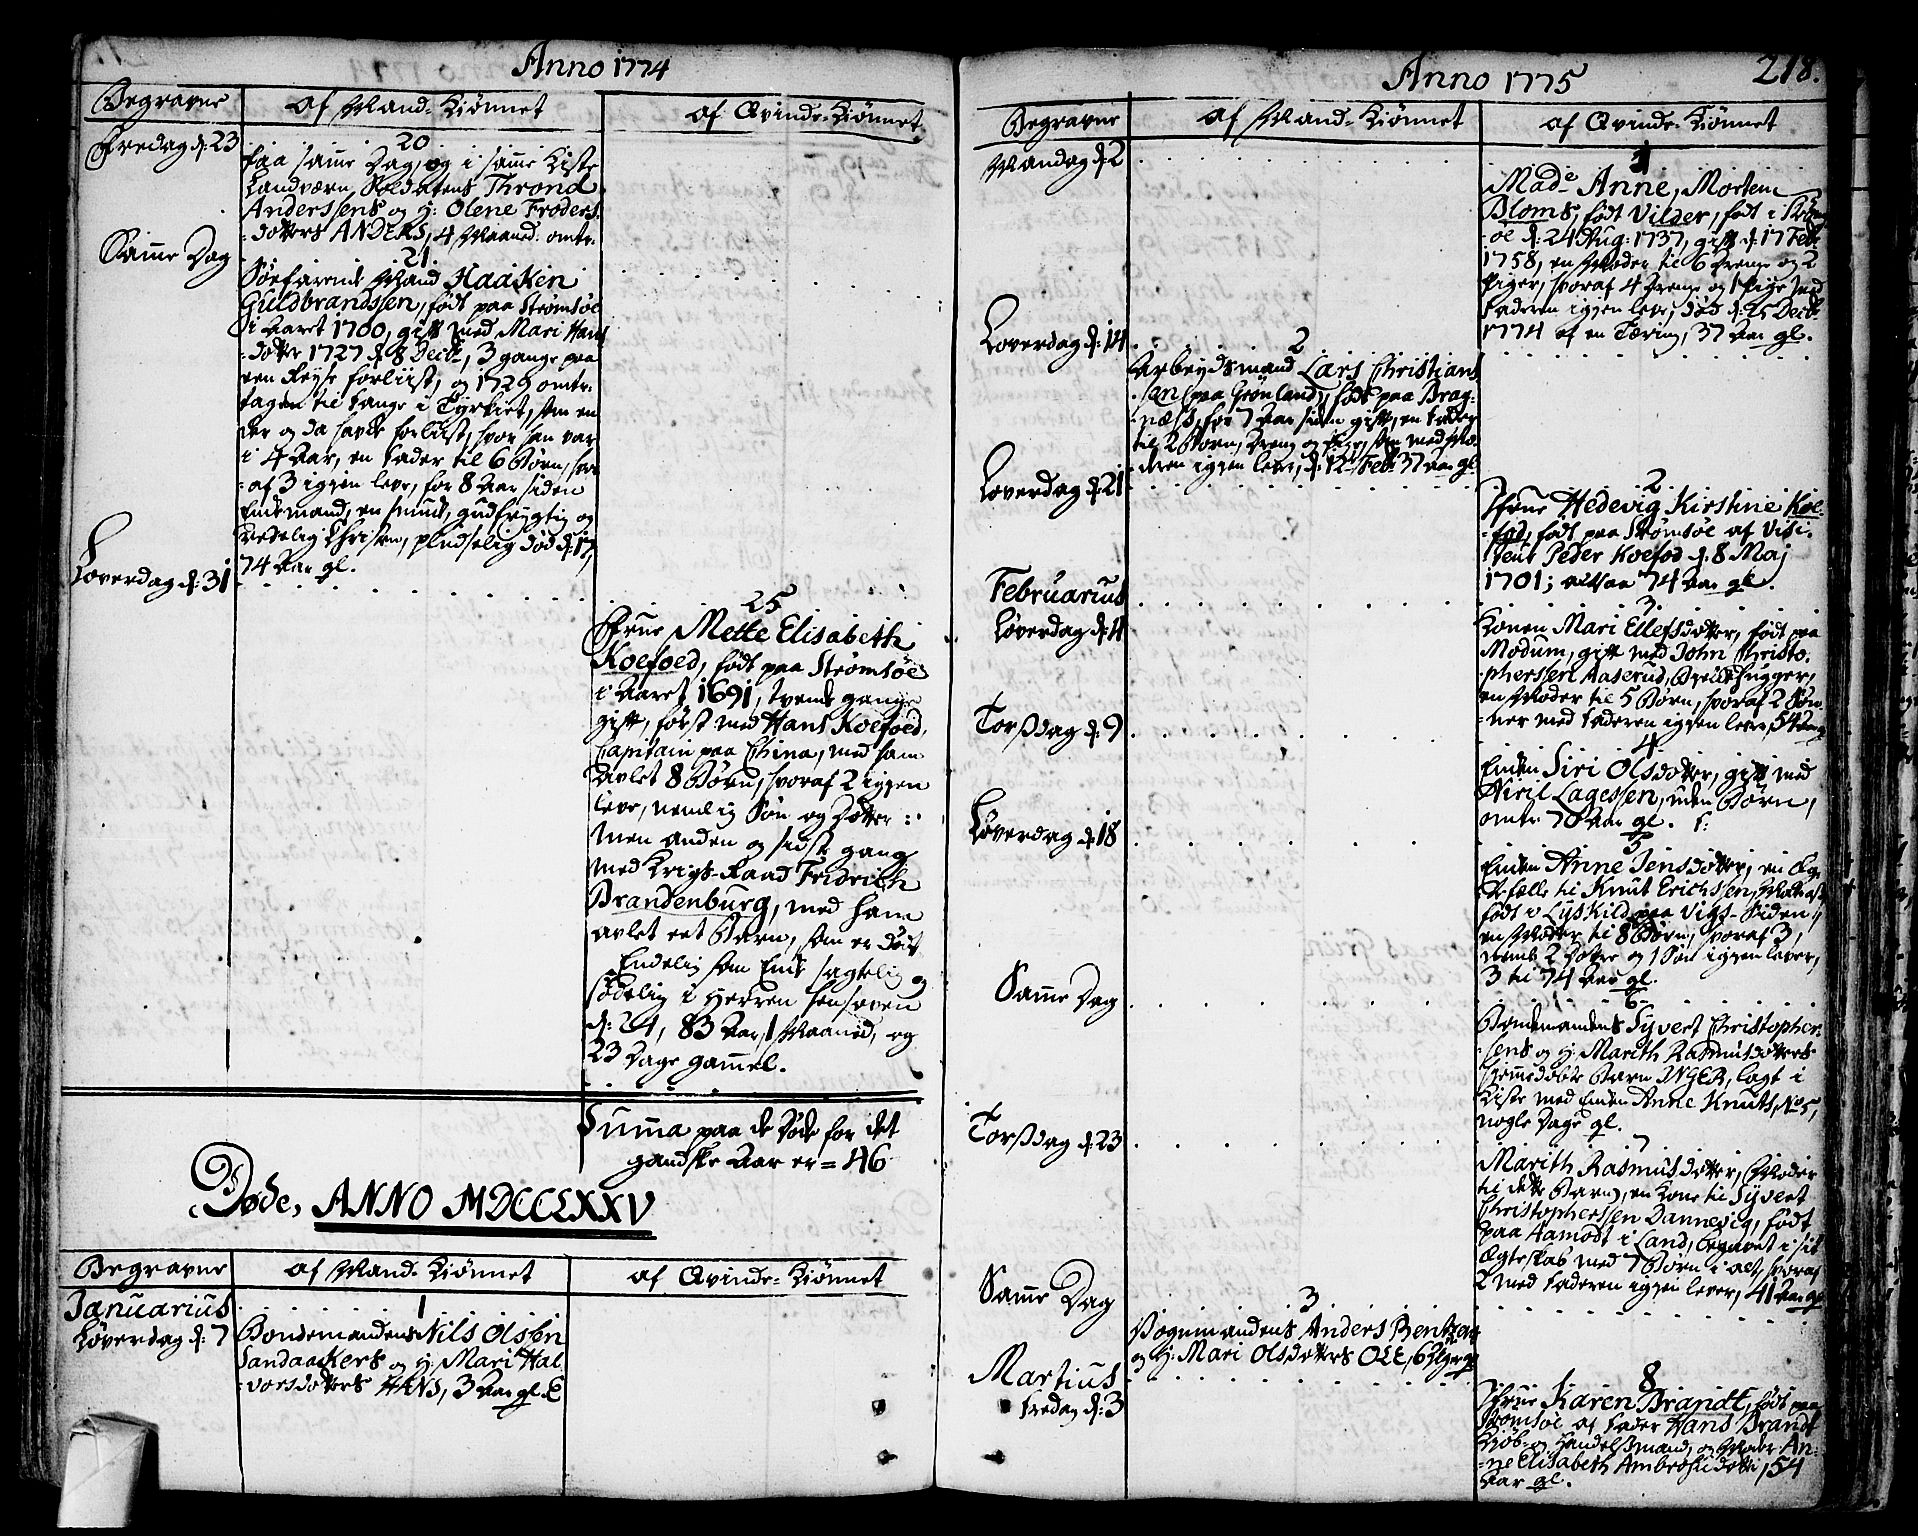 Anno 1774
Begravne
af Mand-Kiønnet
af Qvinde-Kiønnet
Fredag d: 23
20
paa samme Dag og i samme Kiste
Landværn Soldatens Thrond
Anderssens og H: Olene Froders
dotters ANDERS, 4 Maaned: omtr.
Samme Dag
21.
Søefarende Mand Haaken
Guldbrandssen, født paa Strømsøe
i Aaret 1700, gift med Mari Hans
dotter 1727 d: 8 Decb, 3 gange paa
een Reyse forliist, og 1729 omtr.
tagen til fange i Tyrkiet, som en
der og da havde forliist, hvor han var
i 4 Aar, en Fader til 6 Børn, hvor
af 3 igien leve, for 8 Aar siden
Enkemand, en smuk, gudfrygtig og
Christen, pludselig død d: 17,
74 Aar gl.
Løverdag d: 31
25
Frue Mette Elisabeth
Koefoed, født paa Strømsøe
i Aaret 1691, tvende gange
gift, først med Hans Koefoed,
Capitain paa China, med ham
avlet 8 Børn, hvoraf 2 igien
leve, nemlig Søn og Dotter:
men anden og sidste gang
med Krigs-Raad Fridrich
Brandenburg, med ham
avlet eet Barn, som er død
Endelig som Enke sagtelig og
sødelig i Herren hensoven
d: 24, 83 Aar, 1 Maaned, og
23 Dage gammel.
Summa paa de Døde for det
gandske Aar er = 46
Døde, ANNO MDCCLXXV
Begravne
af Mand-Kiønnet
af Qvinde-Kiønnet
Januarius
Løverdag d: 7
1
Bondemandens Nils Olsen
Sandaakers og H: Mari Hal
vorsdotters HANS, 3 Aar gl.
Anno 1775
218.
Begravne
af Mand-Kiønnet
af Qvinde-Kiønnet
Mandag d: 2
1
Made Anne, Morten
Bloms, født Vilder, født i
d: 24 Aug: 1737, gift d: 17 Feb:
1758, en Moder til 6 Drenge og 2
Piger, hvoraf 4 Drenge og 1 Pige med
Faderen igien leve, død d: 25 Decb:
1774 af en Tæring, 37 Aar gl.
Løverdag d: 14
2
Arbeydsmand Lars Christians
sen (paa Grønland), født paa Brag-
næss, for 7 Aar siden gift, en Fader
til 2 Børn, Dreng og Pige, som med Mo-
deren igien leve, d: 12 Feb: 37 Aar gl.
Løverdag d: 21
2
Jfrue Hedevig Kirstine Koe-
fod, født paa Strømsøe af Visi-
teur Peder Koefod d: 8 Maj
1701; altsaa 74 Aar gl.
Februarius
Løverdag d: 4
3.
Konen Mari Ellefsdotter, født paa
Modum, gift med John Christo-
pherssen Aaserud, Brændehugger,
en Moder til 5 Børn, hvoraf 2 Søn-
ner med Faderen igien lever, 54 Aar
Torsdag d: 9
4
Enken Siri Olsdotter, gift med
Lagessen, uden Børn,
omtr. 70 Aar gl.
Løverdag d: 18
5
Enken Anne Jensdotter, en Æg-
tefælle til Knut Erichssen,
født i Lyskild paa Vigs-Siden,
en Moder til 8 Børn, hvoraf 3,
nemlig 2 Dotre og 1 Søn igien lever,
3 til 74 Aar gl.
Samme Dag
6
Bondemandens Syvert Christopher-
sens og H: Marith Rasmusdotters
hjemmedøbte Barn INGER, lagt i
Kiste med Enken Anne Knuts, No 5,
nogle Dage gl.
Torsdag d: 23
7
Marith Rasmusdotter, Moder
til dette Barn, en Kone til Syvert
Christopherssen Dannevig, født
paa Aamodt i Land, begavet i sit
Ægteskab med 7 Børn i alt, hvoraf
2 med Faderen igien lever, 41 Aar gl
Samme Dag
3
Vognmandens Anders Bentzen
og H: Mari Olsdotters OLE, 6 gl
Martius
Fredag d: 3
8
Jfrue Karen Brandt, født paa
Strømsøe af Fader Hans Brandt
Kiøb- og Handelsmand, og Moder An-
ne Elisabeth Ambrosiidotter, 54
Aar gl.